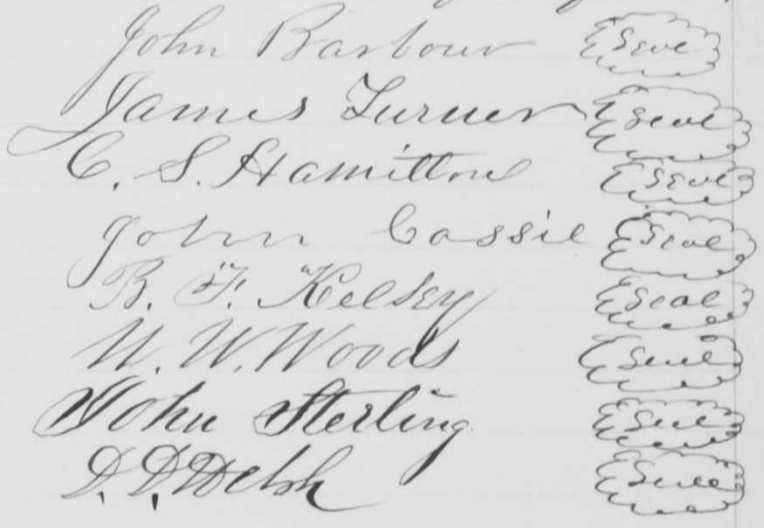 John Barbour Seal
James Turner Seal
C. S. Hamilton Seal
John Cassil Seal
B. F. Kelsey Seal
W. W. Woods Seal
John Sterling Seal
D. D. Welsh Seal